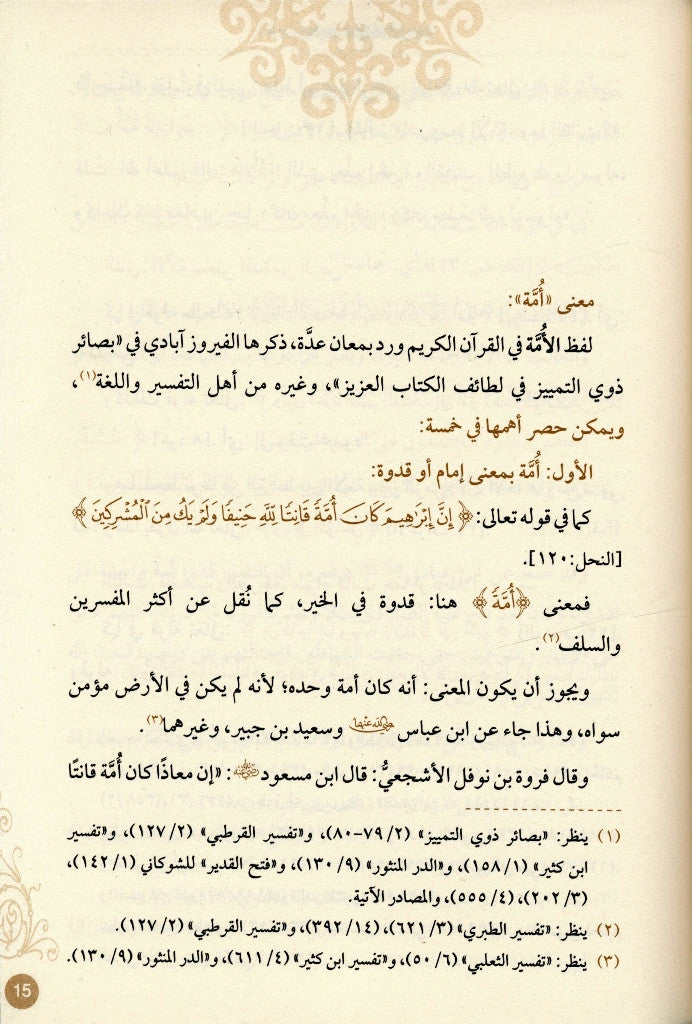 معنى «أُمَّة»:
لفظ الأُمَّة في القرآن الكريم ورد بمعان عدَّة، ذكرها الفيروز آبادي في «بصائر
ذوي التمييز في لطائف الكتاب العزيز»، وغيره من أهل التفسير واللغة(١)،
ويمكن حصر أهمها في خمسة:
الأول: أُمَّة بمعنى إمام أو قدوة:
كما في قوله تعالى: ﴿إِنَّ إِبْرَٰهِيمَ كَانَ أُمَّةً قَانِتًا لِّلَّهِ حَنِيفًا وَلَمْ يَكُ مِنَ ٱلْمُشْرِكِينَ﴾
[النحل:١٢٠].
فمعنى ﴿أُمَّةً﴾ هنا: قدوة في الخير، كما نُقل عن أكثر المفسرين
والسلف(٢).
ويجوز أن يكون المعنى: أنه كان أمة وحده؛ لأنه لم يكن في الأرض مؤمن
سواه، وهذا جاء عن ابن عباس رضي الله عنهما وسعيد بن جبير، وغيرهما(٣).
وقال فروة بن نوفل الأشجعيُّ: قال ابن مسعود رضي الله عنه: «إن معاذًا كان أُمَّة قانتًا
(١) ينظر: «بصائر ذوي التمييز» (٢/ ٧٩-٨٠)، و«تفسير القرطبي» (٢/ ١٢٧)، و«تفسير
ابن كثير» (١/ ١٥٨)، و«الدر المنثور» (٩/ ١٣٠)، و«فتح القدير» للشوكاني (١/ ١٤٢)،
(٣/ ٢٠٢)، (٤/ ٥٥٥)، والمصادر الآتية.
(٢) ينظر: «تفسير الطبري» (٣/ ٦٢١)، (١٤/ ٣٩٢)، و«تفسير القرطبي» (٢/ ١٢٧).
(٣) ينظر: «تفسير الثعلبي» (٦/ ٥٠)، و«تفسير ابن كثير» (٤/ ٦١١)، و«الدر المنثور» (٩/ ١٣٠).
15